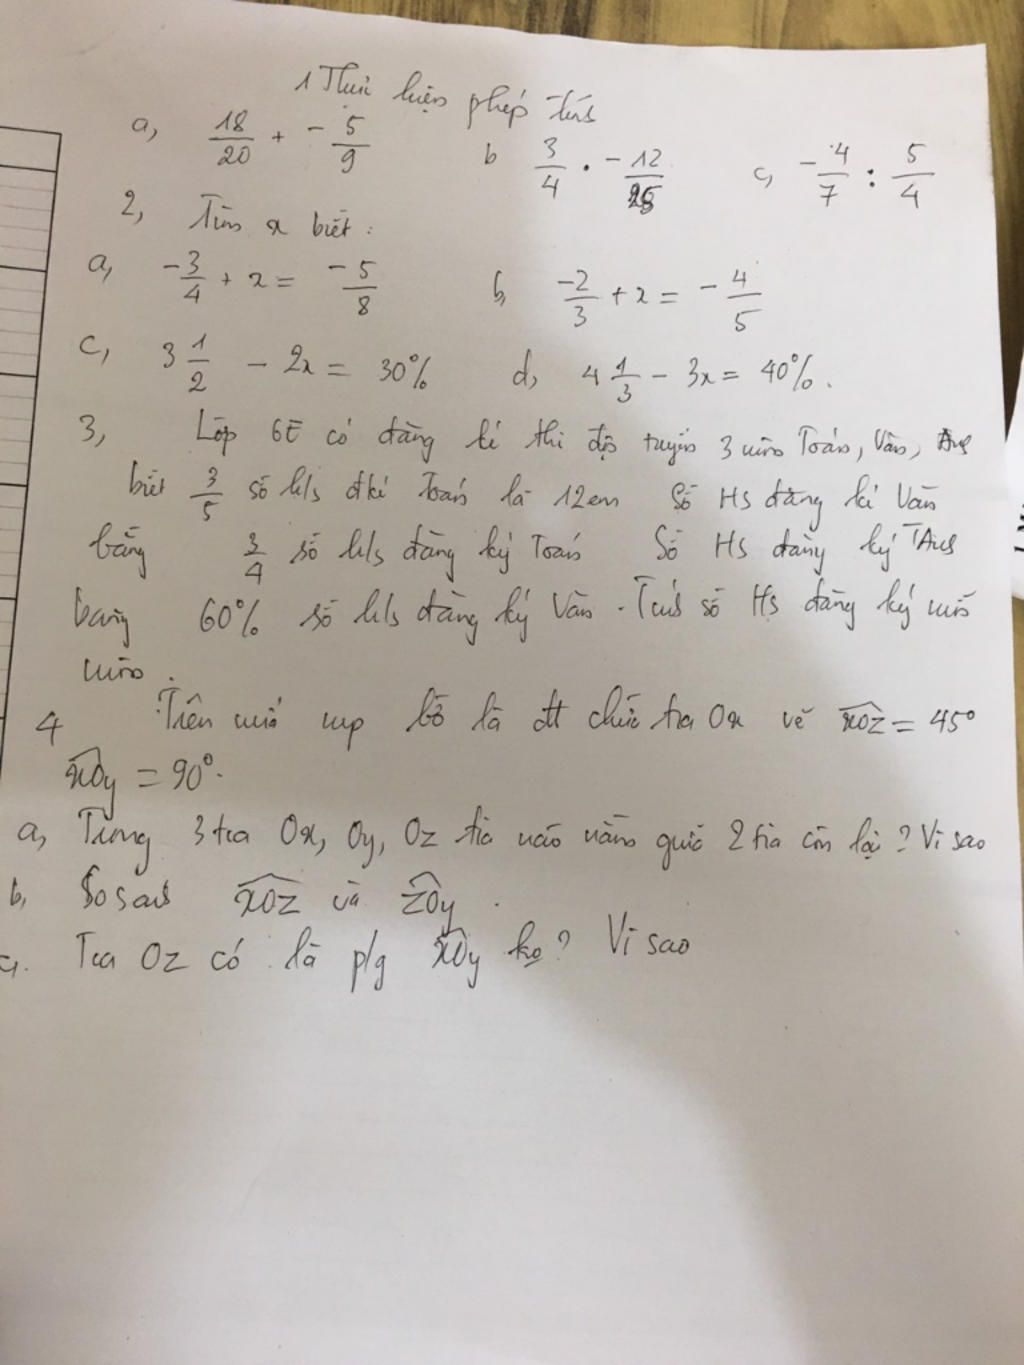 1 Thực hiện phép tính
a, 18/20 + -5/9 b 3/4 . -12/25 c, -4/7 : 5/4
2, Tìm x biết :
a, -3/4 + x = -5/8 b, -2/3 + x = -4/5
c, 3 1/2 - 2x = 30% d, 4 1/3 - 3x = 40%.
3, Lớp 6E có đăng kí thi đội tuyển 3 môn Toán, Văn, Anh
biết 3/5 số h/s đkí Toán là 12em Số HS đăng kí Văn
bằng 3/4 số h/s đăng ký Toán Số HS đăng ký TAnh
bằng 60% số h/s đăng ký Văn. Tính số Hs đăng ký mỗi
môn.
4 Trên nửa mp bờ là đt chứa tia Ox vẽ xOz = 45°
xOy = 90°.
a, Trong 3 tia Ox, Oy, Oz tia nào nằm giữa 2 tia còn lại? Vì sao
b, So sánh xOz và zOy.
c. Tia Oz có là p/g xOy ko? Vì sao